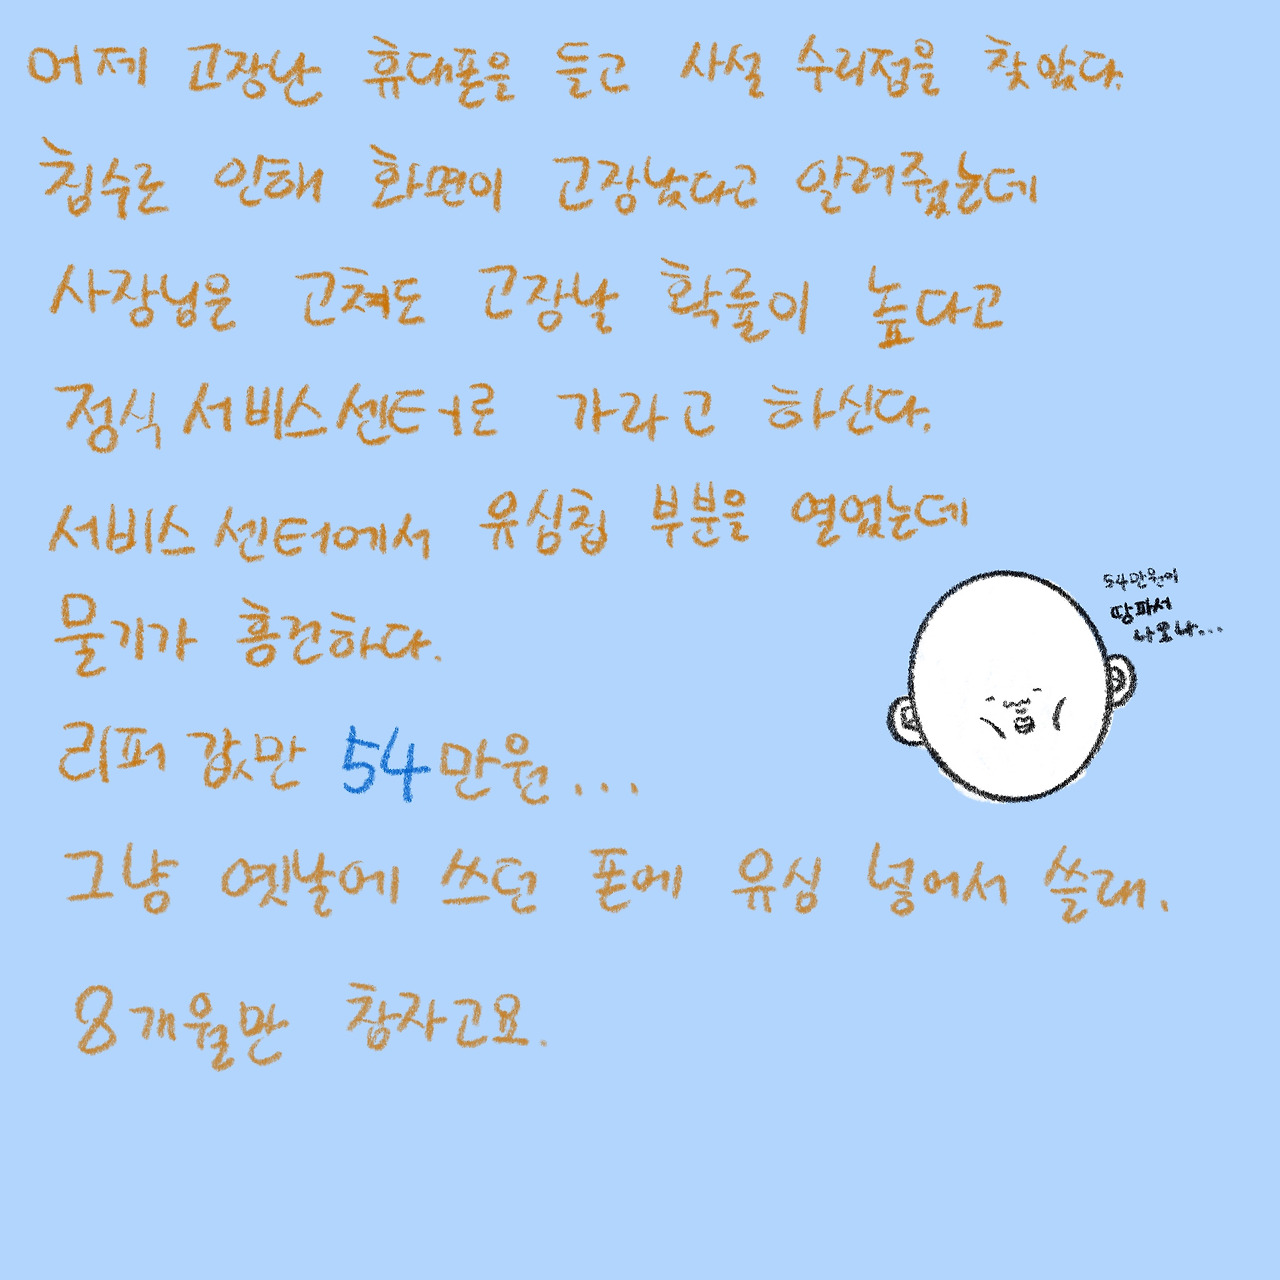 어제 고장난 휴대폰을 들고 사설 수리점을 찾았다.
침수로 인해 화면이 고장났다고 알려줬는데
사장님은 고쳐도 고장날 확률이 높다고
정식 서비스센터로 가라고 하신다.
서비스 센터에서 유심칩 부분을 열었는데
물기가 흥건하다.
54만원이
땅파서
나오나...
리퍼 값만 54만원...
그냥 옛날에 쓰던 폰에 유심 넣어서 쓸래.
8개월만 참자고요.